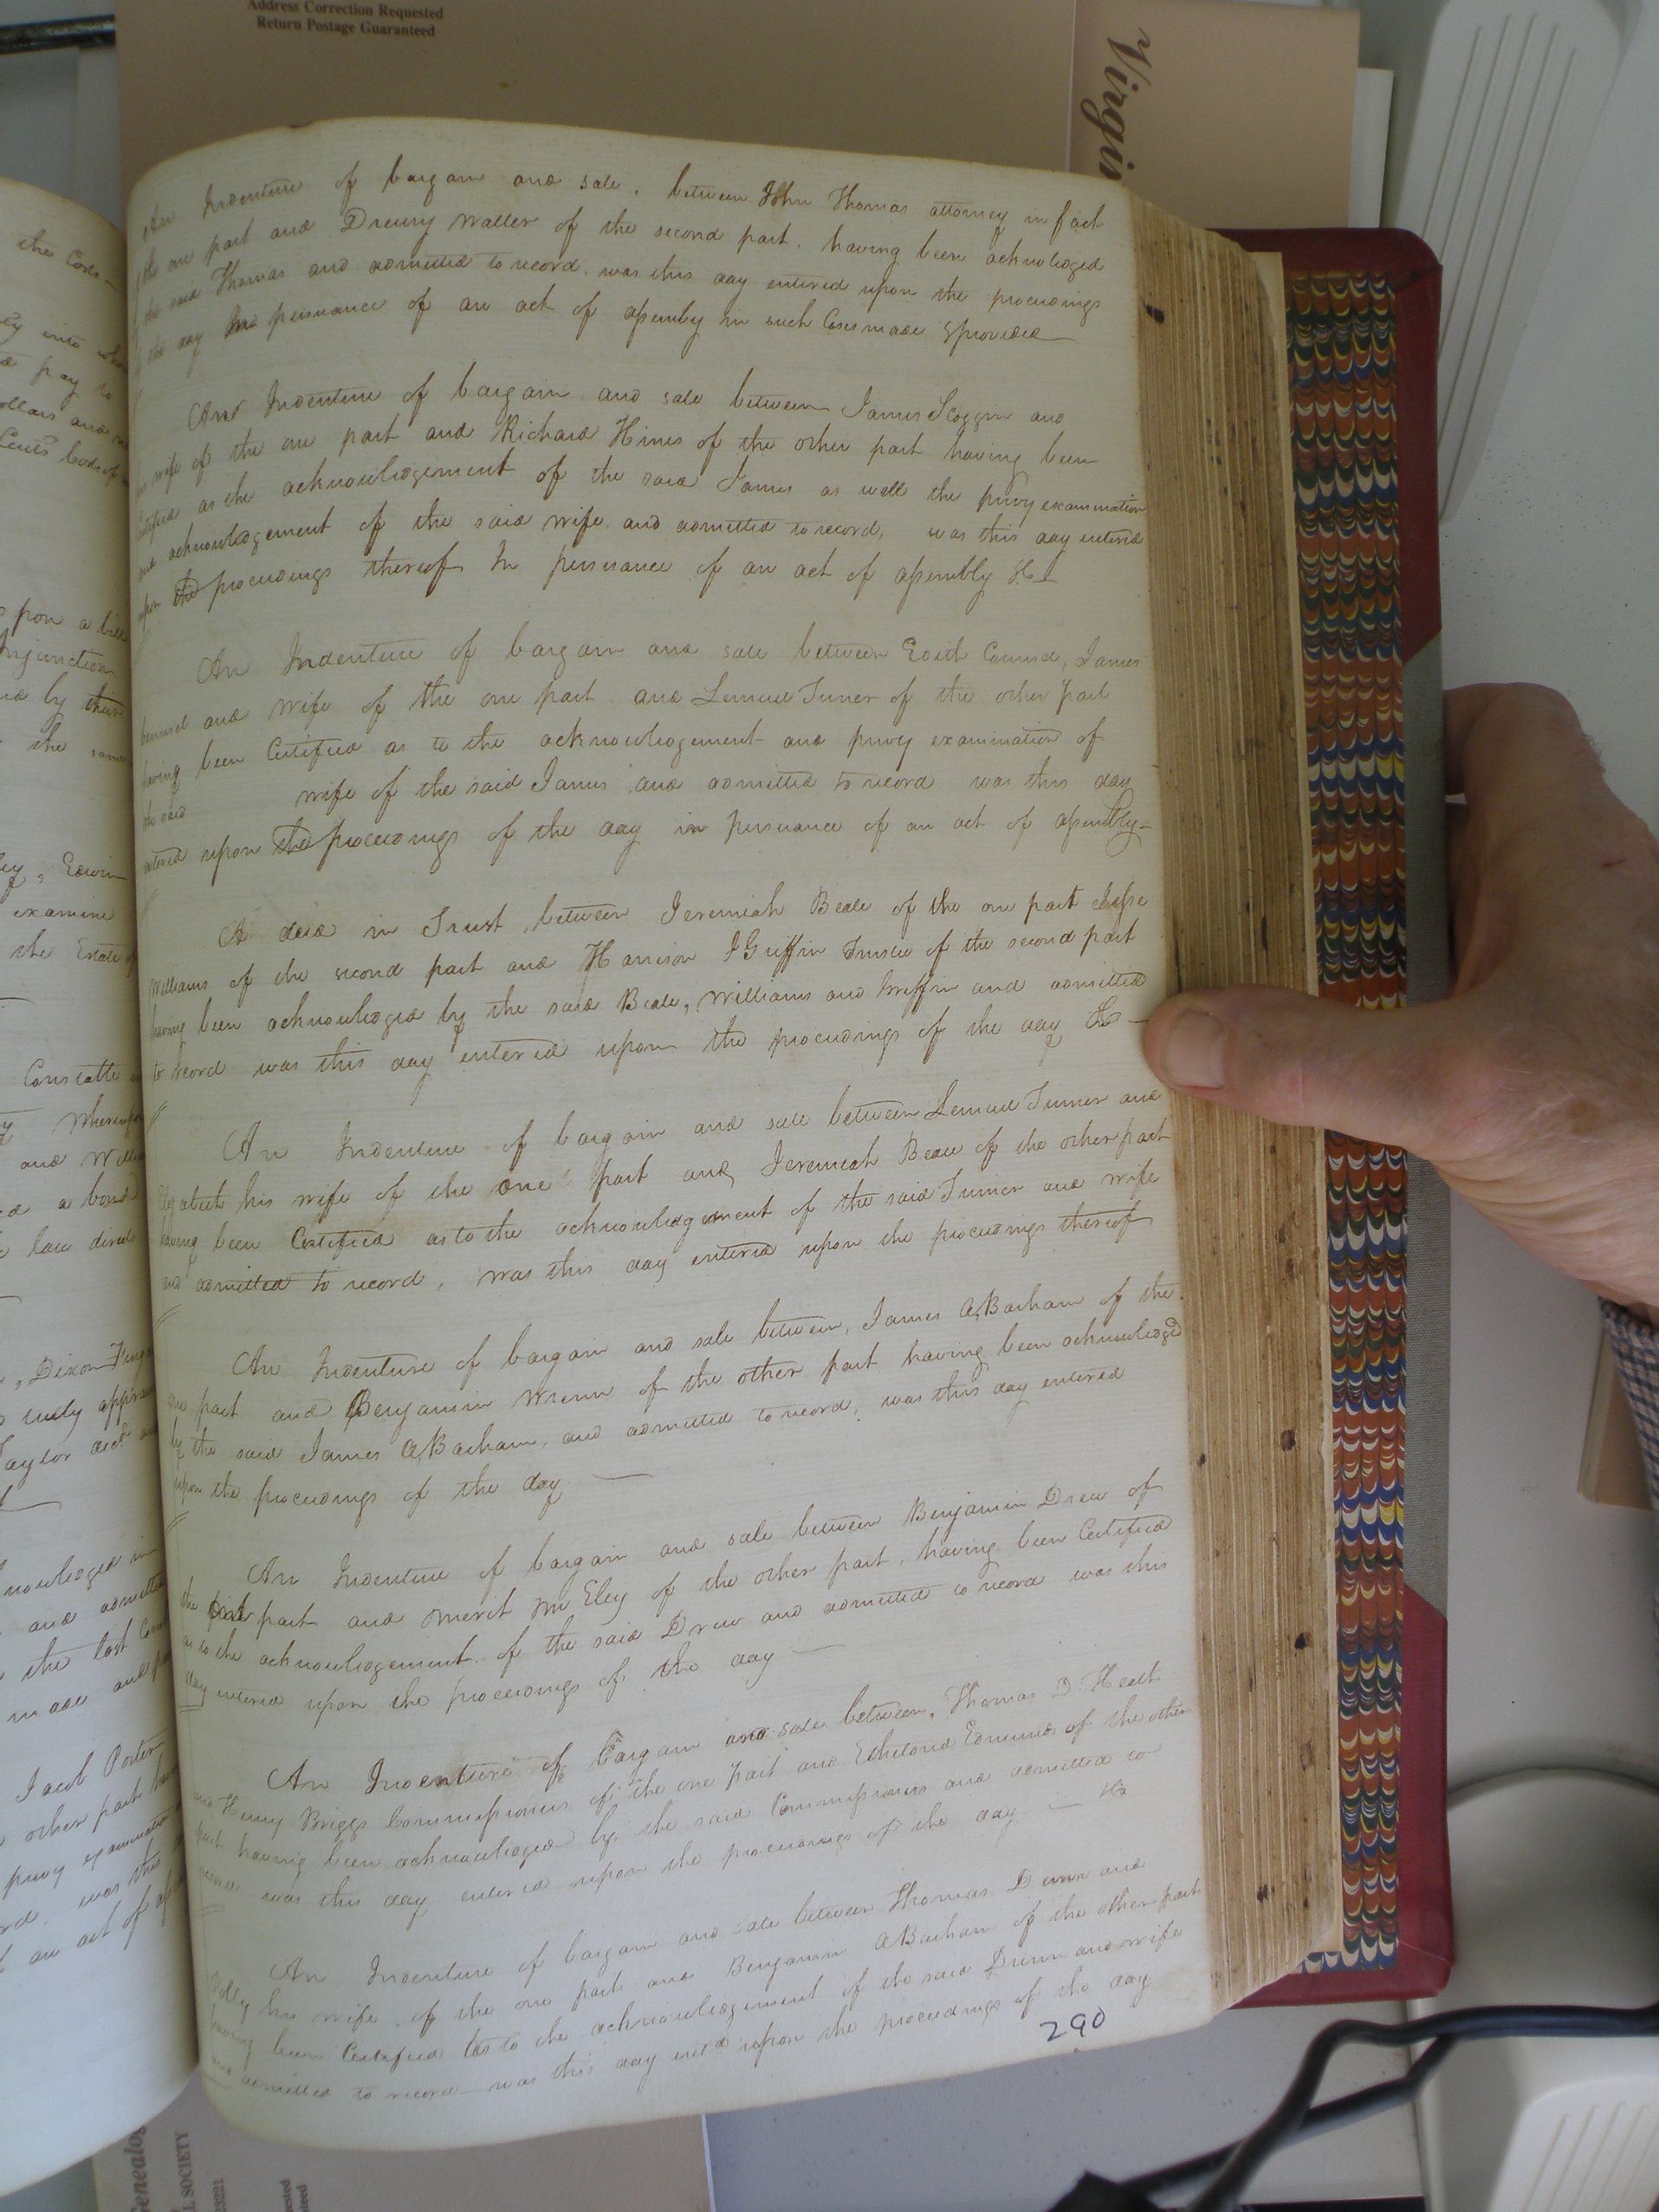 Address Correction Requested
Return Postage Guaranteed
Virgin
An Indenture of bargain and sale, between John Thomas attorney in fact
of the one part and Drewry Waller of the second part, having been acknowledged
the said Thomas and admitted to record, was this day entered upon the proceedings
the day In persuance of an act of assembly in such Cases made & provided
An Indenture of bargain and sale between James Scoggin and
his wife of the one part and Richard Hines of the other part having been
Certified as the acknowledgement of the said James as well the privy examination
and acknowledgement of the said wife and admitted to record, was this day entered
upon the proceedings thereof In persuance of an act of assembly &c
An Indenture of bargain and sale between Edith Councel, James
Councel and wife of the one part and Lemuel Turner of the other part
having been Certified as to the acknowledgement and privy examination of
the said wife of the said James and admitted to record was this day
entered upon the proceedings of the day in persuance of an act of assembly
A deed in Trust between Jeremiah Beale of the one part Jesse
Williams of the second part and Harrison J Griffin Trustee of the second part
having been acknowledged by the said Beale, Williams and Griffin and admitted
to record was this day entered upon the proceedings of the day &c
An Indenture of bargain and sale between Lemuel Turner and
Elizabeth his wife of the one part and Jeremiah Beale of the other part
having been Certified as to the acknowledgement of the said Turner and wife
and admitted to record, was this day entered upon the proceedings thereof
An Indenture of bargain and sale between, James A. Barham of the
one part and Benjamin Wrenn of the other part having been acknowledged
by the said James A. Barham, and admitted to record, was this day entered
upon the proceedings of the day
An Indenture of bargain and sale between Benjamin Drew of
the one part and Merit M Eley of the other part, having been Certified
as to the acknowledgement of the said Drew and admitted to record was this
day entered upon the proceedings of the day
An Indenture of bargain and sale between, Thomas D. Heath
and Henry Briggs Commissioners of the one part and Etheldred Edmunds of the other
part having been acknowledged by the said Commissioners and admitted to
record was this day entered upon the proceedings of the day &c
An Indenture of bargain and sale between Thomas Dunn and
Polly his wife of the one part and Benjamin A Barham of the other part
having been Certified as to the acknowledgement of the said Dunn and wife
and admitted to record was this day entd upon the proceedings of the day
290
the Costs
pay to
dollars and
upon a bill
Injunction
by their
the same
Edwin
examine
the Estate
Constable
Whereupon
and
a bond
law directs
Dixon
Taylor decd
and admitted
the last
made and
Jacob Porter
other part
privy examination
was this
an act of
Genealog
L SOCIETY
23221